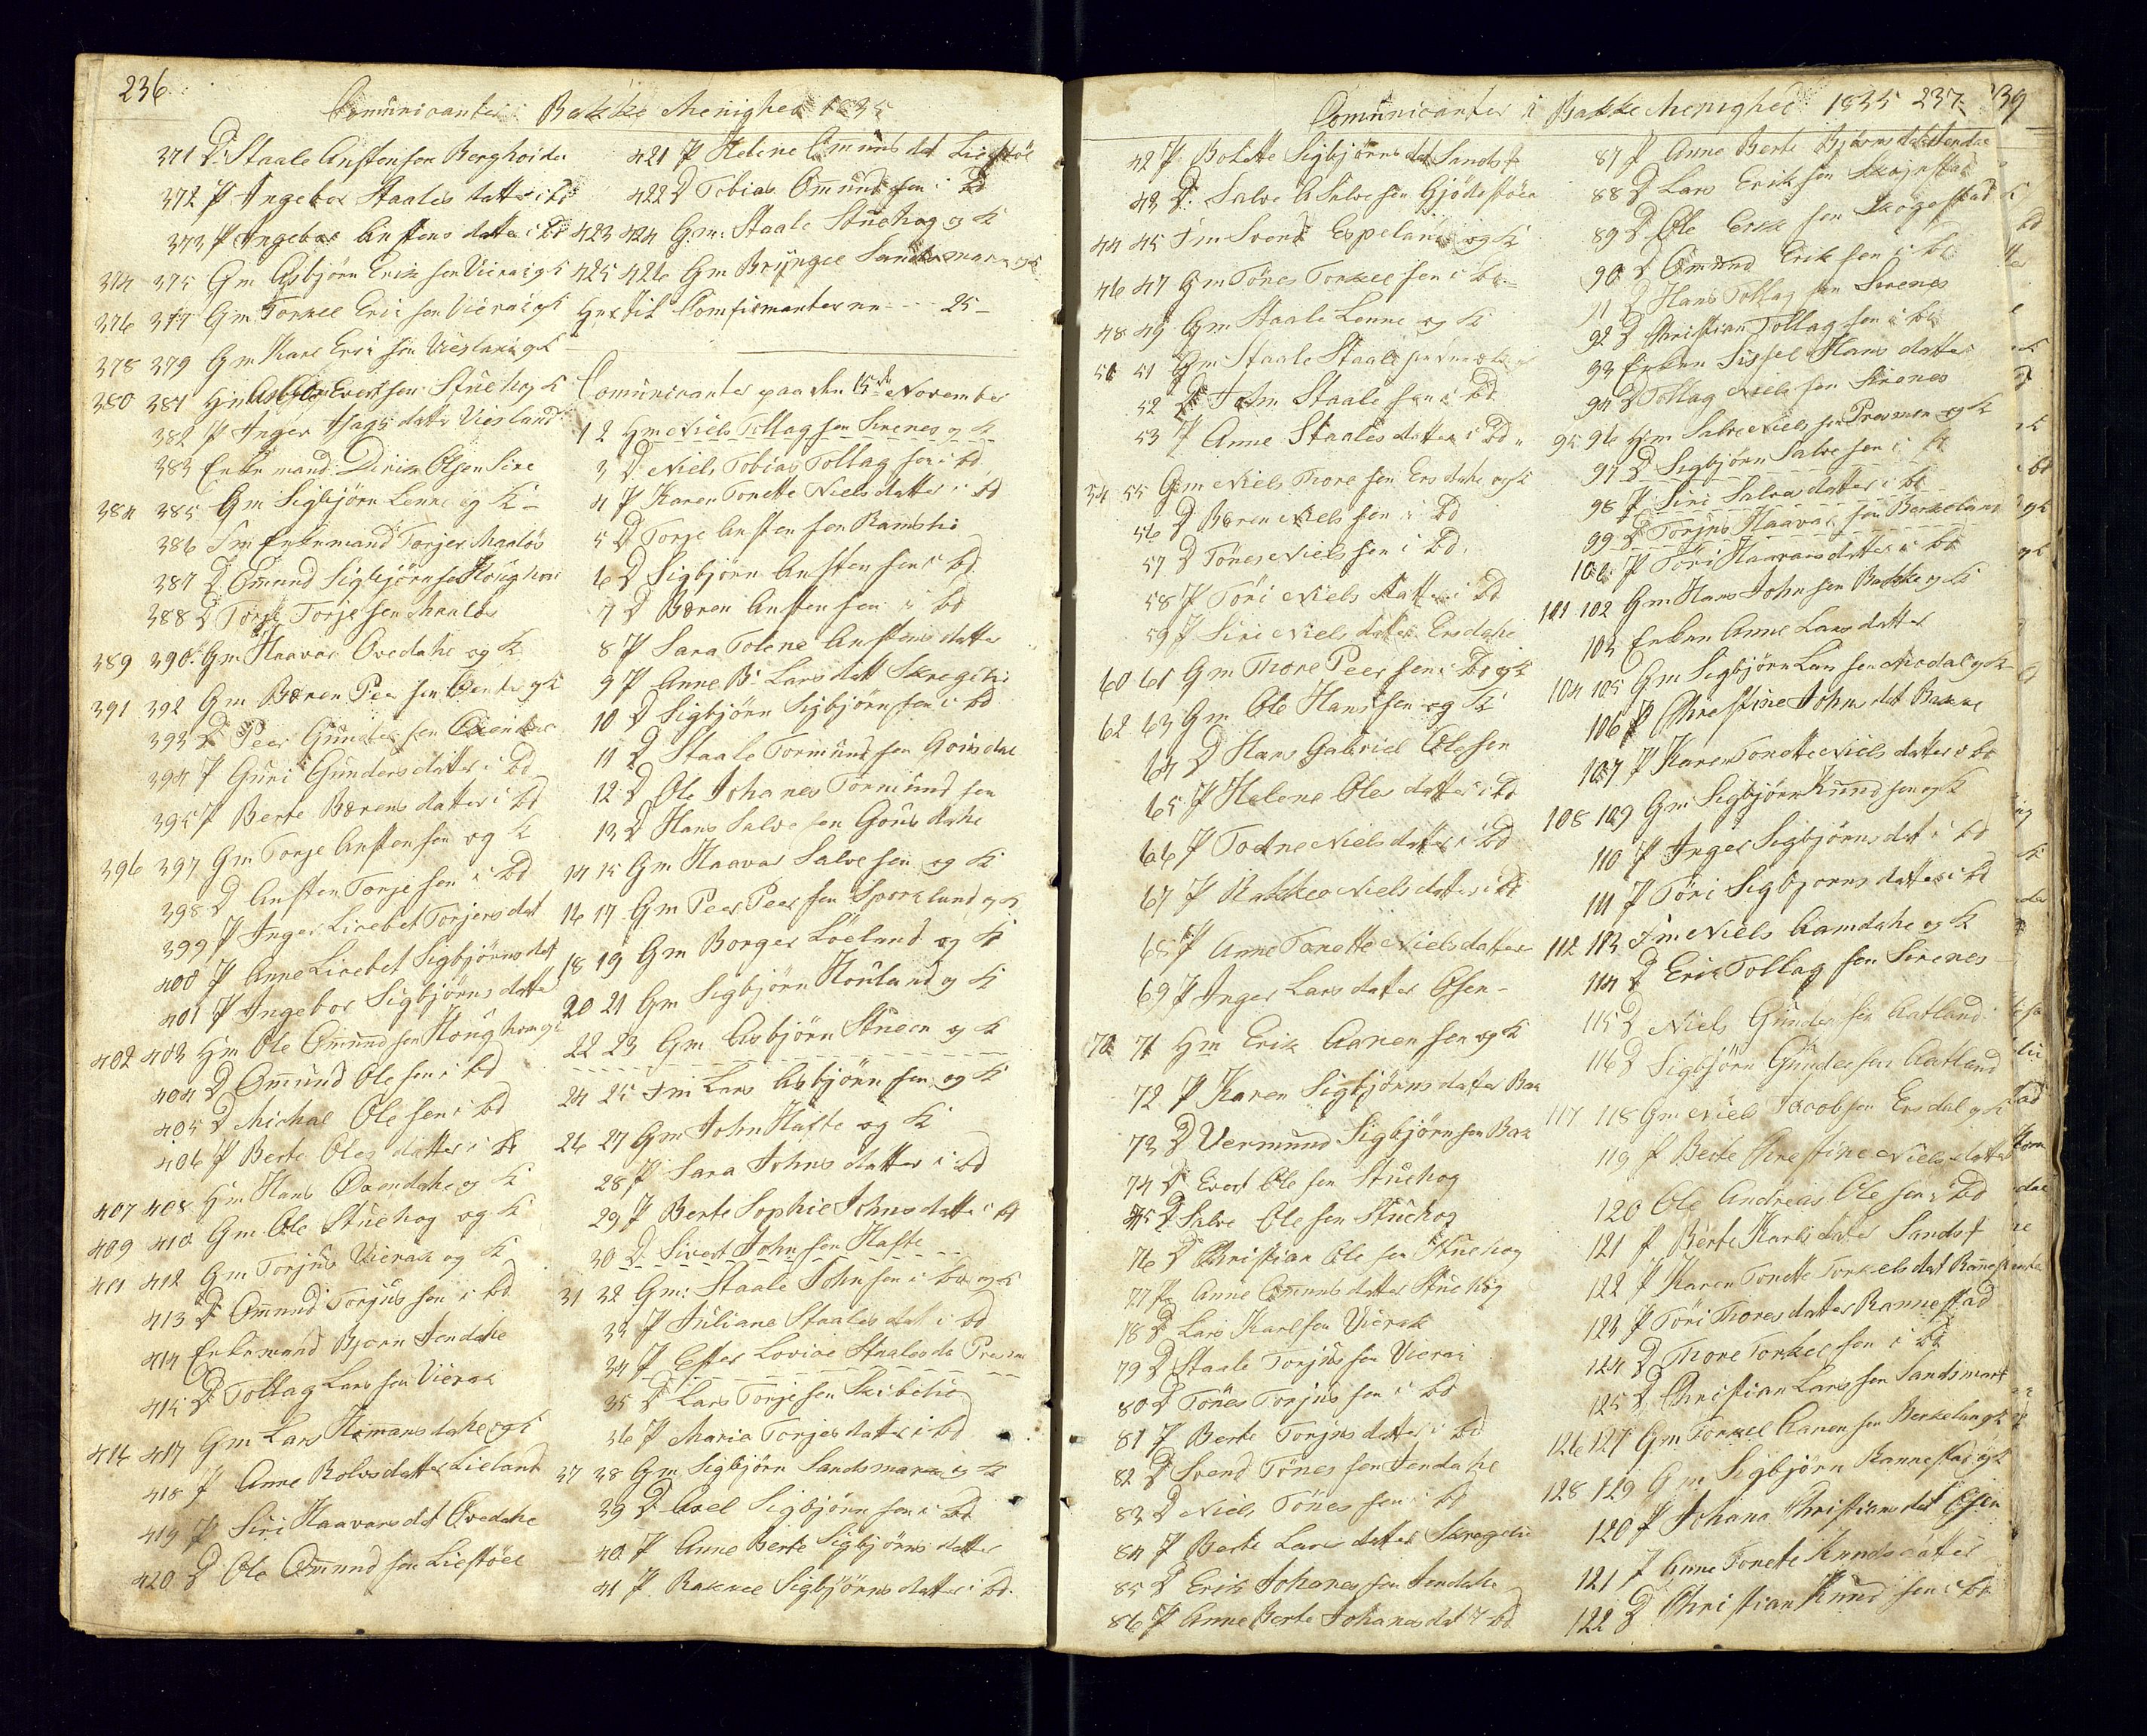 236
Comunicanter i Bakke Menighed 1835
371 D. Staale Anstensen Berghoiden
372 P Ingebor Staales datter i bd
373 P Ingebor Anstens datter i bd
374 375 Gm Asbjörn Erik sen Vierak og K
376 377 Gm Torkel Eric sen Vierak og K
378 379 Gm Karl Eri sen Viesland og K
380 381 Hm Evertsen Stuehog K
382 P Inger Aags dattr Viesland
383 Enkemand Dirik Olsen Sire
384 385 Gm Sigbjörn Lenne og K
386 Fm Enkemand Torjer Maaløs
387 D Omund Sigbjörnsen Houghom
388 D Torje Torjesen Maaløs
389 390 Gm Haavar Ovedahl og K
391 392 Gm Bæren Peer sen Oxendal og K
393 D Peer Gunder sen Oxendal
394 P Guri Gunders datter i bd
395 P Berte Bærens datter i bd
396 397 Gm Torje Anstensen og K
398 D Ansten Torjesen i bd
399 P Inger Lisebet Torjers dat
400 P Anne Lisebet Sigbjörns dat
401 P Ingebor Sigbjörns datter
402 403 Hm Ole Omund sen Houghom og K
404 D Omund Olesen i bd
405 D Michal Olesen i bd
406 P Berte Oles datter i bd
407 408 Hm Hans Oxendahl og K
409 410 Gm Ole Stuehog og K
411 412 Gm Torjus Vierak og K
413 D Omund Torjus sen i bd
414 Enkemand Bjorn Jendahl
415 D Tollag Lars sen Vierak
416 417 Gm Lars Homansdahl og K
418 P Anne Rolvs datter Lieland
419 P Siri Haavars dat Ovedahl
420 D Ole Omund sen Liestöel
421 P Helene Omunds dat Liestöl
422 D Tobias Omund sen i bd
423 424 Gm: Staale Stuehog og K
425 426 Gm Brynge Sandsmark og K
Hertil Confirmanterne - - - 25 -
Comunicanter paa den 15de November
1 2 Hm Niels Tollag sen Sirenes og K
3 D Niels Tobias Tollag sen i bd
4 P Karen Tonette Niels datter i bd
5 D Torje Ansten sen Ramsli
6 D Sigbjörn Ansten sen i bd
7 D Bæren Ansten sen i bd
8 P Sara Tolene Anstens datter
9 P Anne B: Lars datt Skregeli
10 D Sigbjörn Sigbjörnsen i bd
11 D Staale Tormund sen Gousdal
12 D Ole Johanes Tormund sen
13 D Hans Salve sen Gousdahl
14 15 Gm Haavar Salve sen og K
16 17 Gm Peer Peer sen Sporkland og K
18 19 Gm Borger Löeland og K
20 21 Gm Sigbjörn Houland og K
22 23 Gm Asbjörn Stueen og K
24 25 Fm Lars Asbjörn sen og K
26 27 Gm John Hafte og K
28 P Sara Johns datter i bd
29 P Berte Sophie Johns datter i bd
30 D Sivert John sen Hafte
31 32 Gm: Staale John sen i bd og K
33 P Juliane Staales dat i bd
34 P Ester Lovise Staales da Presm
35 D Lars Torje sen Skibelie
36 P Maria Torjes datter i bd
37 38 Gm Sigbjörn Sandsmark og K
39 D Axel Sigbjörn sen i bd
40 P Anne Berte Sigbjörns datter
41 P Rakkel Sigbjörns datter i bd
Comunicanter i Bakke Menighed 1835 237
39
42 P Bolette Sigbjörns dat Sandsf
43 D. Salve A Salvesen Gjödestöen
44 45 Fm Svend Espeland og K
46 47 Gm Tönes Torkelsen i bd
48 49 Gm Staale Lenne og K
50 51 Gm Staale Staale sen
52 D John Staale sen i bd
53 P Anne Staales datter i bd
54 55 Gm Niels Thore sen Ersdahl og K
56 D Bæren Niels sen i bd
57 D Tönes Niels sen i bd
58 P Töri Niels datter i bd
59 P Siri Niels datter Ersdahl
60 61 Gm Thore Peer sen i bd og K
62 63 Gm Ole Hans sen og K
64 D Hans Gabriel Olesen
65 P Helene Oles datter i bd
66 P Todne Niels datter i bd
67 P Rakkel Niels datter i bd
68 P Anne Tonette Niels datter
69 P Inger Lars datter Osen
70 71 Hm Erik Aanensen og K
72 P Karen Sigbjörns datter Bak
73 D Vermund Sigbjörnsen Bak
74 D Evert Ole sen Stuehog
75 D Salve Ole sen Stuehog
76 D Christian Ole sen Stuehog
77 P Anne Omunds datter Stuehog
78 D Lars Karlsen Vierak
79 D Staale Torjus sen Vierak
80 D Tönes Torjus sen i bd
81 P Berte Torjus datter i bd
82 D Svend Tönes sen Jendahl
83 D Niels Tönes sen i bd
84 P Berte Lars datter Skregelie
85 D Erik Johanes sen Jendahl
86 P Anne Berte Johanes dat i bd
87 P Anne Berte Björns dat Jendal
88 D Lars Erik sen Skogestad
89 D Ole Erik sen Skogestad
90 D Omund Erik sen i bd
91 D Hans Tollag sen Sirenes
92 D Christian Tollag sen i bd
93 Enken Sissel Hans datter
94 D Tollag Niels sen Sirenes
95 96 Hm Salve Niels sen Presmon og K
97 D Sigbjörn Salve sen i bd
98 P Siri Salves datter i bd
99 D Torjus Haavar sen Berkeland
100 P Töri Haavars datter i bd
101 102 Gm Hans John sen Bakke og K
103 Enken Anne Lars datter
104 105 Gm Sigbjörn Lars sen Modal og K
106 P Christine Johns dat Bakke
107 P Karen Tonette Niels datter i bd
108 109 Gm Sigbjörn Knud sen og K
110 P Inger Sigbjörns dat i bd
111 P Töri Sigbjorns datter i bd
112 113 Fm Niels Aamdahl og K
114 D Erik Tollag sen Sirenes
115 D Niels Gunder sen Aatland
116 D Sigbjörn Gunder sen Aatland
117 118 Gm Niels Jacobsen Ersdal og K
119 P Berte Christine Niels datter
120 Ole Andreas Ole sen i bd
121 P Berte Karls datter Sandsf
122 P Karen Tonette Torkels dat Rannest
123 P Töri Thores datter Rannestad
124 D Thore Torkel sen i bd
125 D Christian Lars sen Sandsmark
126 127 Gm Torkel Aanen sen Berkeland og K
128 129 Gm Sigbjörn Rannestad og K
120 P Johana Christians dat Osen
121 P Anne Tonete Knuds datter
122 D Christian Knud sen i bd